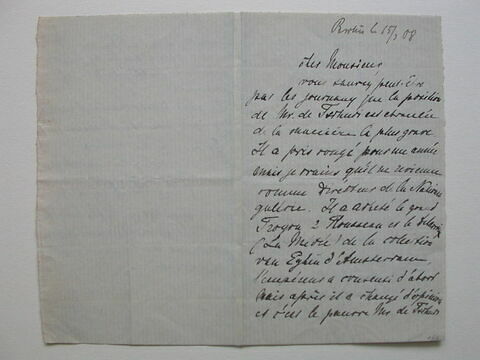 Berlin le 15/3 08
Cher Monsieur,
vous saurez peut-être
par les journaux que la position
de Mr. de Tschudi est ébranlée
de la manière la plus grave.
Il a pris congé pour une année
mais je crains qu'il ne revienne
comme Directeur de la National
gallerie. Il a acheté le grand
Troyon 2 Rousseau et le Delacroix
(La Medée) de la collection
van Eghen d'Amsterdam,
l'empereur a consenti d'abord
mais après il a changé d'opinion
et c'est le pauvre Mr. de Tschudi